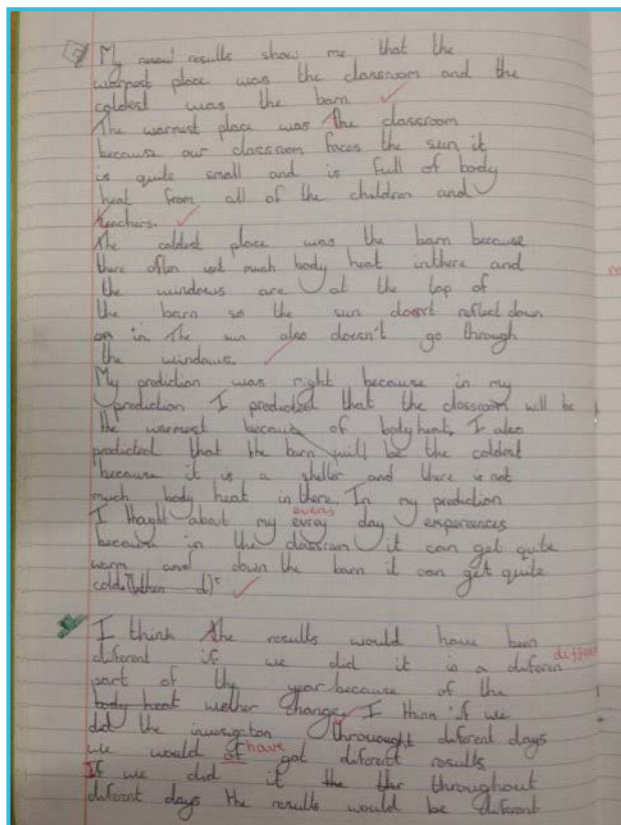 My results show me that the
warmest place was the classroom and the
coldest was the barn.
The warmest place was The classroom
because our classroom faces the sun it
is quite small and is full of body
heat from all of the children and
teachers.
The coldest place was the barn because
there often isnt much body heat inthere and
the windows are at the top of
the barn so the sun doesnt reflect down
in. The sun also doesn't go through
the windows.
My prediction was right because in my
prediction I predicted that the classroom will be
the warmest because of body heat. I also
predicted that the barn will be the coldest
because it is a shelter and there is not
much body heat in there. In my prediction
every
I thaght about my evray day experances
because in the classroom it can get quite
warm and down the barn it can get quite
cold.
I think The results would have ben
diferent if we did it in a diferen
part of the year because of the
body heat wether change. I think if we
did the throwought diferent days
have
we would of got diferent results.
If we did it the throughout
diferent days the results would be diferent